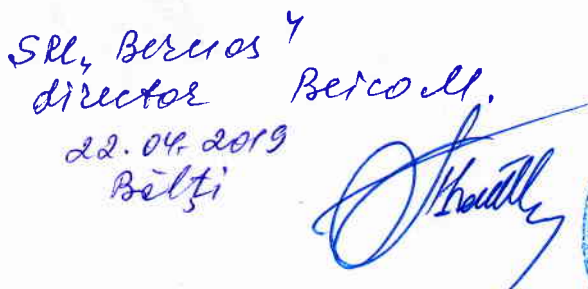 SRL „Bermos"
director Beico M.
22.04.2019
Bălți